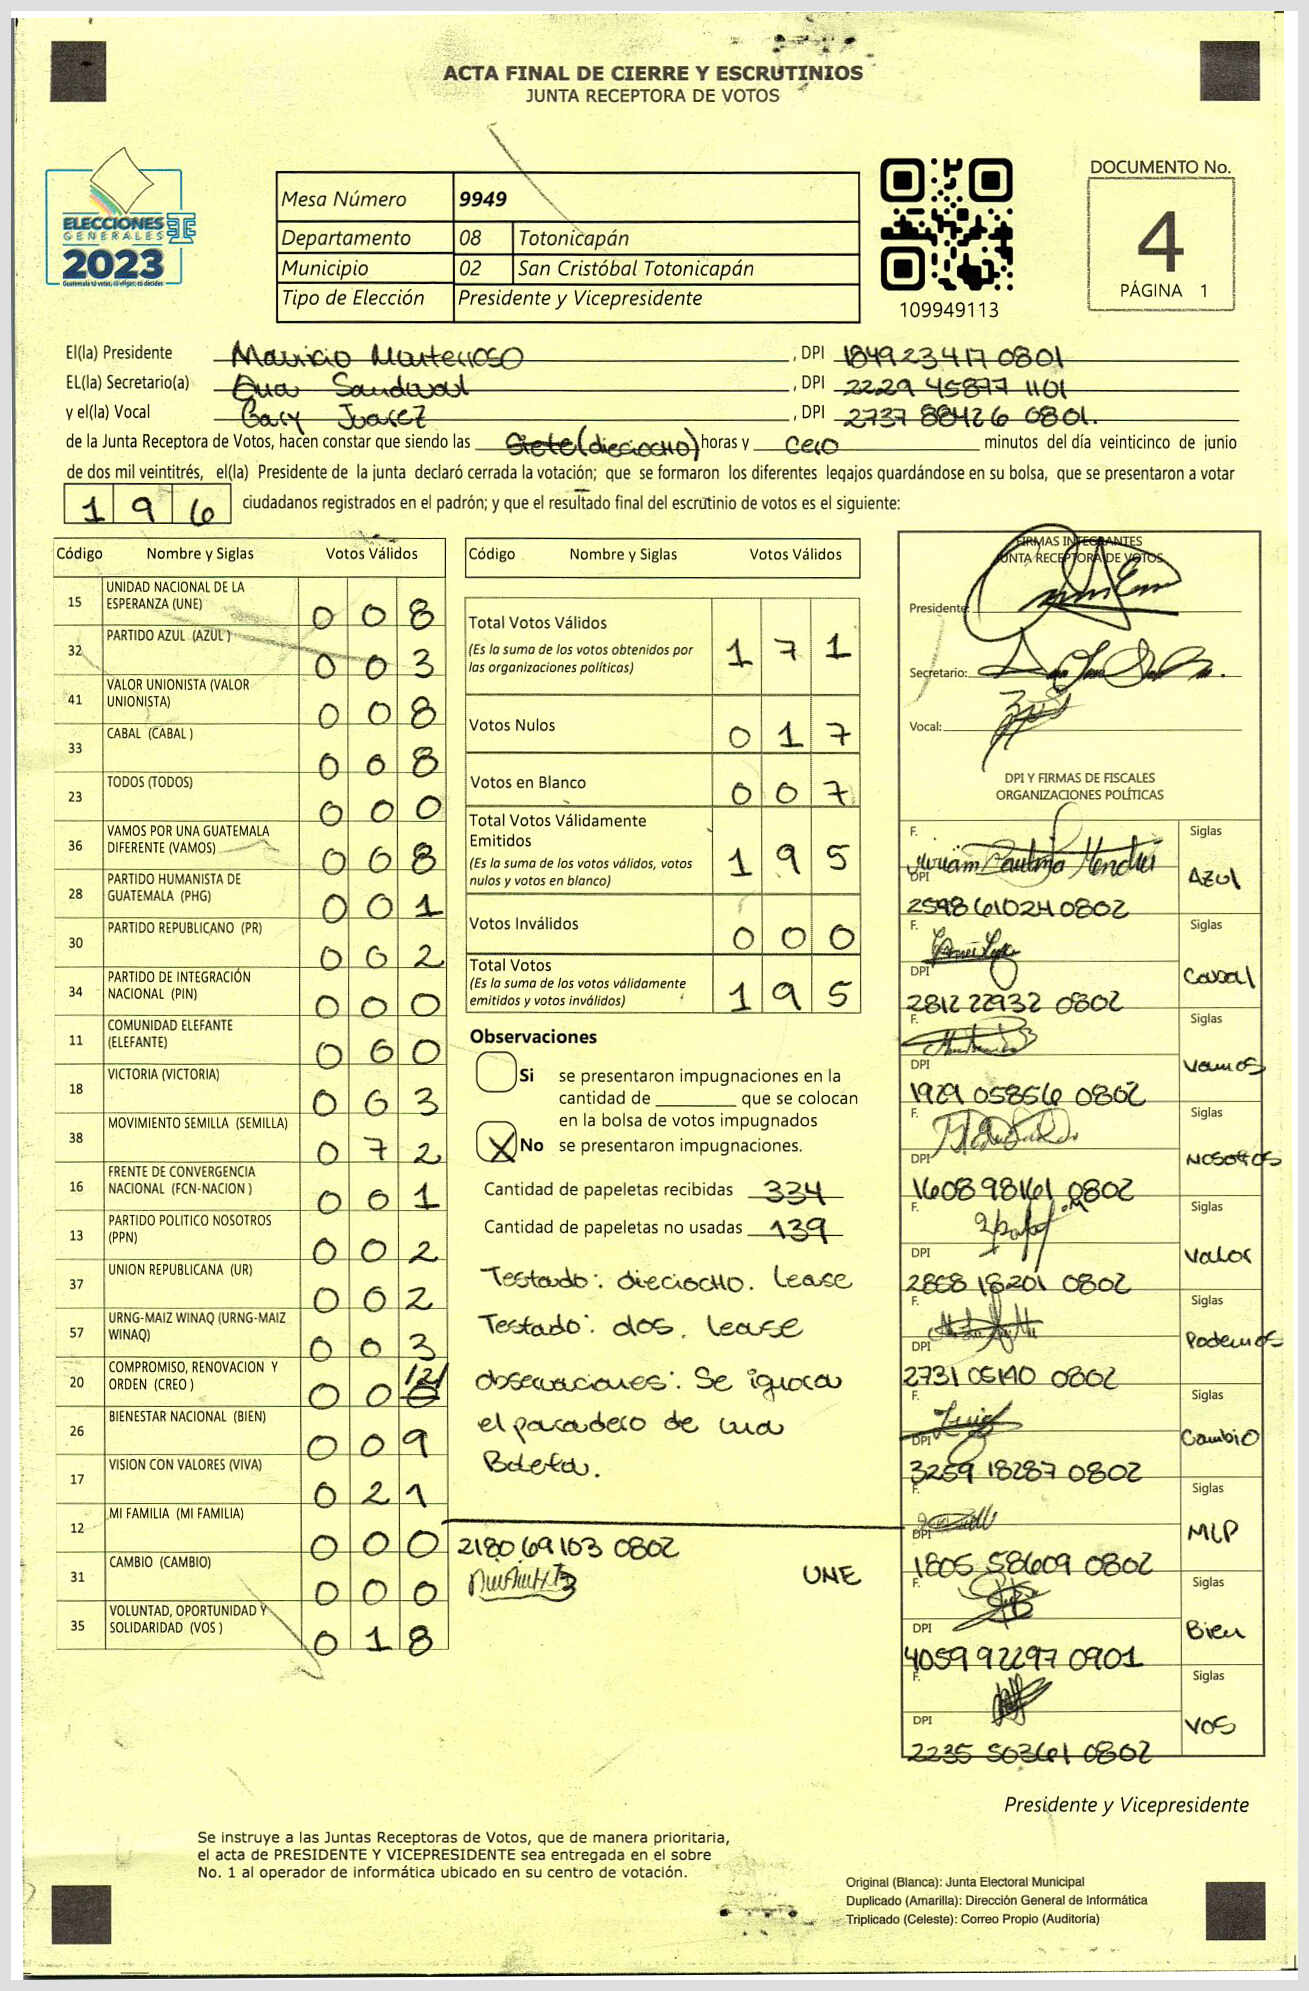 ACTA FINAL DE CIERRE Y ESCRUTINIOS
JUNTA RECEPTORA DE VOTOS
ELECCIONES
GENERALES
2023
Guatemala tú votas, tú eliges, tú decides
Mesa Número 9949
Departamento 08 Totonicapán
Municipio 02 San Cristóbal Totonicapán
Tipo de Elección Presidente y Vicepresidente
109949113
DOCUMENTO No.
4
PÁGINA 1
El(la) Presidente Mauricio Monterroso , DPI 1849 23417 0801
EL(la) Secretario(a) Ana Sandoval , DPI 2229 45877 1101
y el(la) Vocal Gary Juarez , DPI 2737 88426 0801.
de la Junta Receptora de Votos, hacen constar que siendo las Siete (dieciocho) horas y cero minutos del día veinticinco de junio
de dos mil veintitrés, el(la) Presidente de la junta declaró cerrada la votación; que se formaron los diferentes legajos quardándose en su bolsa, que se presentaron a votar
196 ciudadanos registrados en el padrón; y que el resultado final del escrutinio de votos es el siguiente:
Código Nombre y Siglas Votos Válidos
15 UNIDAD NACIONAL DE LA ESPERANZA (UNE) 008
32 PARTIDO AZUL (AZUL ) 003
41 VALOR UNIONISTA (VALOR UNIONISTA) 008
33 CABAL (CABAL ) 008
23 TODOS (TODOS) 000
36 VAMOS POR UNA GUATEMALA DIFERENTE (VAMOS) 008
28 PARTIDO HUMANISTA DE GUATEMALA (PHG) 001
30 PARTIDO REPUBLICANO (PR) 002
34 PARTIDO DE INTEGRACIÓN NACIONAL (PIN) 000
11 COMUNIDAD ELEFANTE (ELEFANTE) 000
18 VICTORIA (VICTORIA) 003
38 MOVIMIENTO SEMILLA (SEMILLA) 072
16 FRENTE DE CONVERGENCIA NACIONAL (FCN-NACION ) 001
13 PARTIDO POLITICO NOSOTROS (PPN) 002
37 UNION REPUBLICANA (UR) 002
57 URNG-MAIZ WINAQ (URNG-MAIZ WINAQ) 003
20 COMPROMISO, RENOVACION Y ORDEN (CREO ) 00 /2/
26 BIENESTAR NACIONAL (BIEN) 009
17 VISION CON VALORES (VIVA) 021
12 MI FAMILIA (MI FAMILIA) 000
31 CAMBIO (CAMBIO) 000
35 VOLUNTAD, OPORTUNIDAD Y SOLIDARIDAD (VOS ) 018
Código Nombre y Siglas Votos Válidos
Total Votos Válidos 171
(Es la suma de los votos obtenidos por
las organizaciones políticas)
Votos Nulos 017
Votos en Blanco 007
Total Votos Válidamente
Emitidos 195
(Es la suma de los votos válidos, votos
nulos y votos en blanco)
Votos Inválidos 000
Total Votos 195
(Es la suma de los votos válidamente
emitidos y votos inválidos)
Observaciones
Si se presentaron impugnaciones en la
cantidad de ________ que se colocan
en la bolsa de votos impugnados
X No se presentaron impugnaciones.
Cantidad de papeletas recibidas 334
Cantidad de papeletas no usadas 139
Testado: dieciocho. Lease
Testado: dos. Lease
observaciones: Se ignora
el paradero de una
Boleta.
2180 69103 0802
UNE
FIRMAS INTEGRANTES
JUNTA RECEPTORA DE VOTOS
Presidente:
Secretario:
Vocal:
DPI Y FIRMAS DE FISCALES
ORGANIZACIONES POLÍTICAS
F. Siglas
DPI AZUL
2598 61024 0802
F. Siglas
DPI Cabal
2812 22932 0802
F. Siglas
DPI Vamos
1929 05856 0802
F. Siglas
DPI NOSOTROS
1608 98161 0802
F. Siglas
DPI Valor
2858 18201 0802
F. Siglas
DPI Podemos
2731 05140 0802
F. Siglas
DPI Cambio
3259 18287 0802
F. Siglas
DPI MLP
1805 58609 0802
F. Siglas
DPI Bien
4059 92297 0901
F. Siglas
DPI VOS
2235 50361 0802
Presidente y Vicepresidente
Se instruye a las Juntas Receptoras de Votos, que de manera prioritaria,
el acta de PRESIDENTE Y VICEPRESIDENTE sea entregada en el sobre
No. 1 al operador de informática ubicado en su centro de votación.
Original (Blanca): Junta Electoral Municipal
Duplicado (Amarilla): Dirección General de Informática
Triplicado (Celeste): Correo Propio (Auditoría)